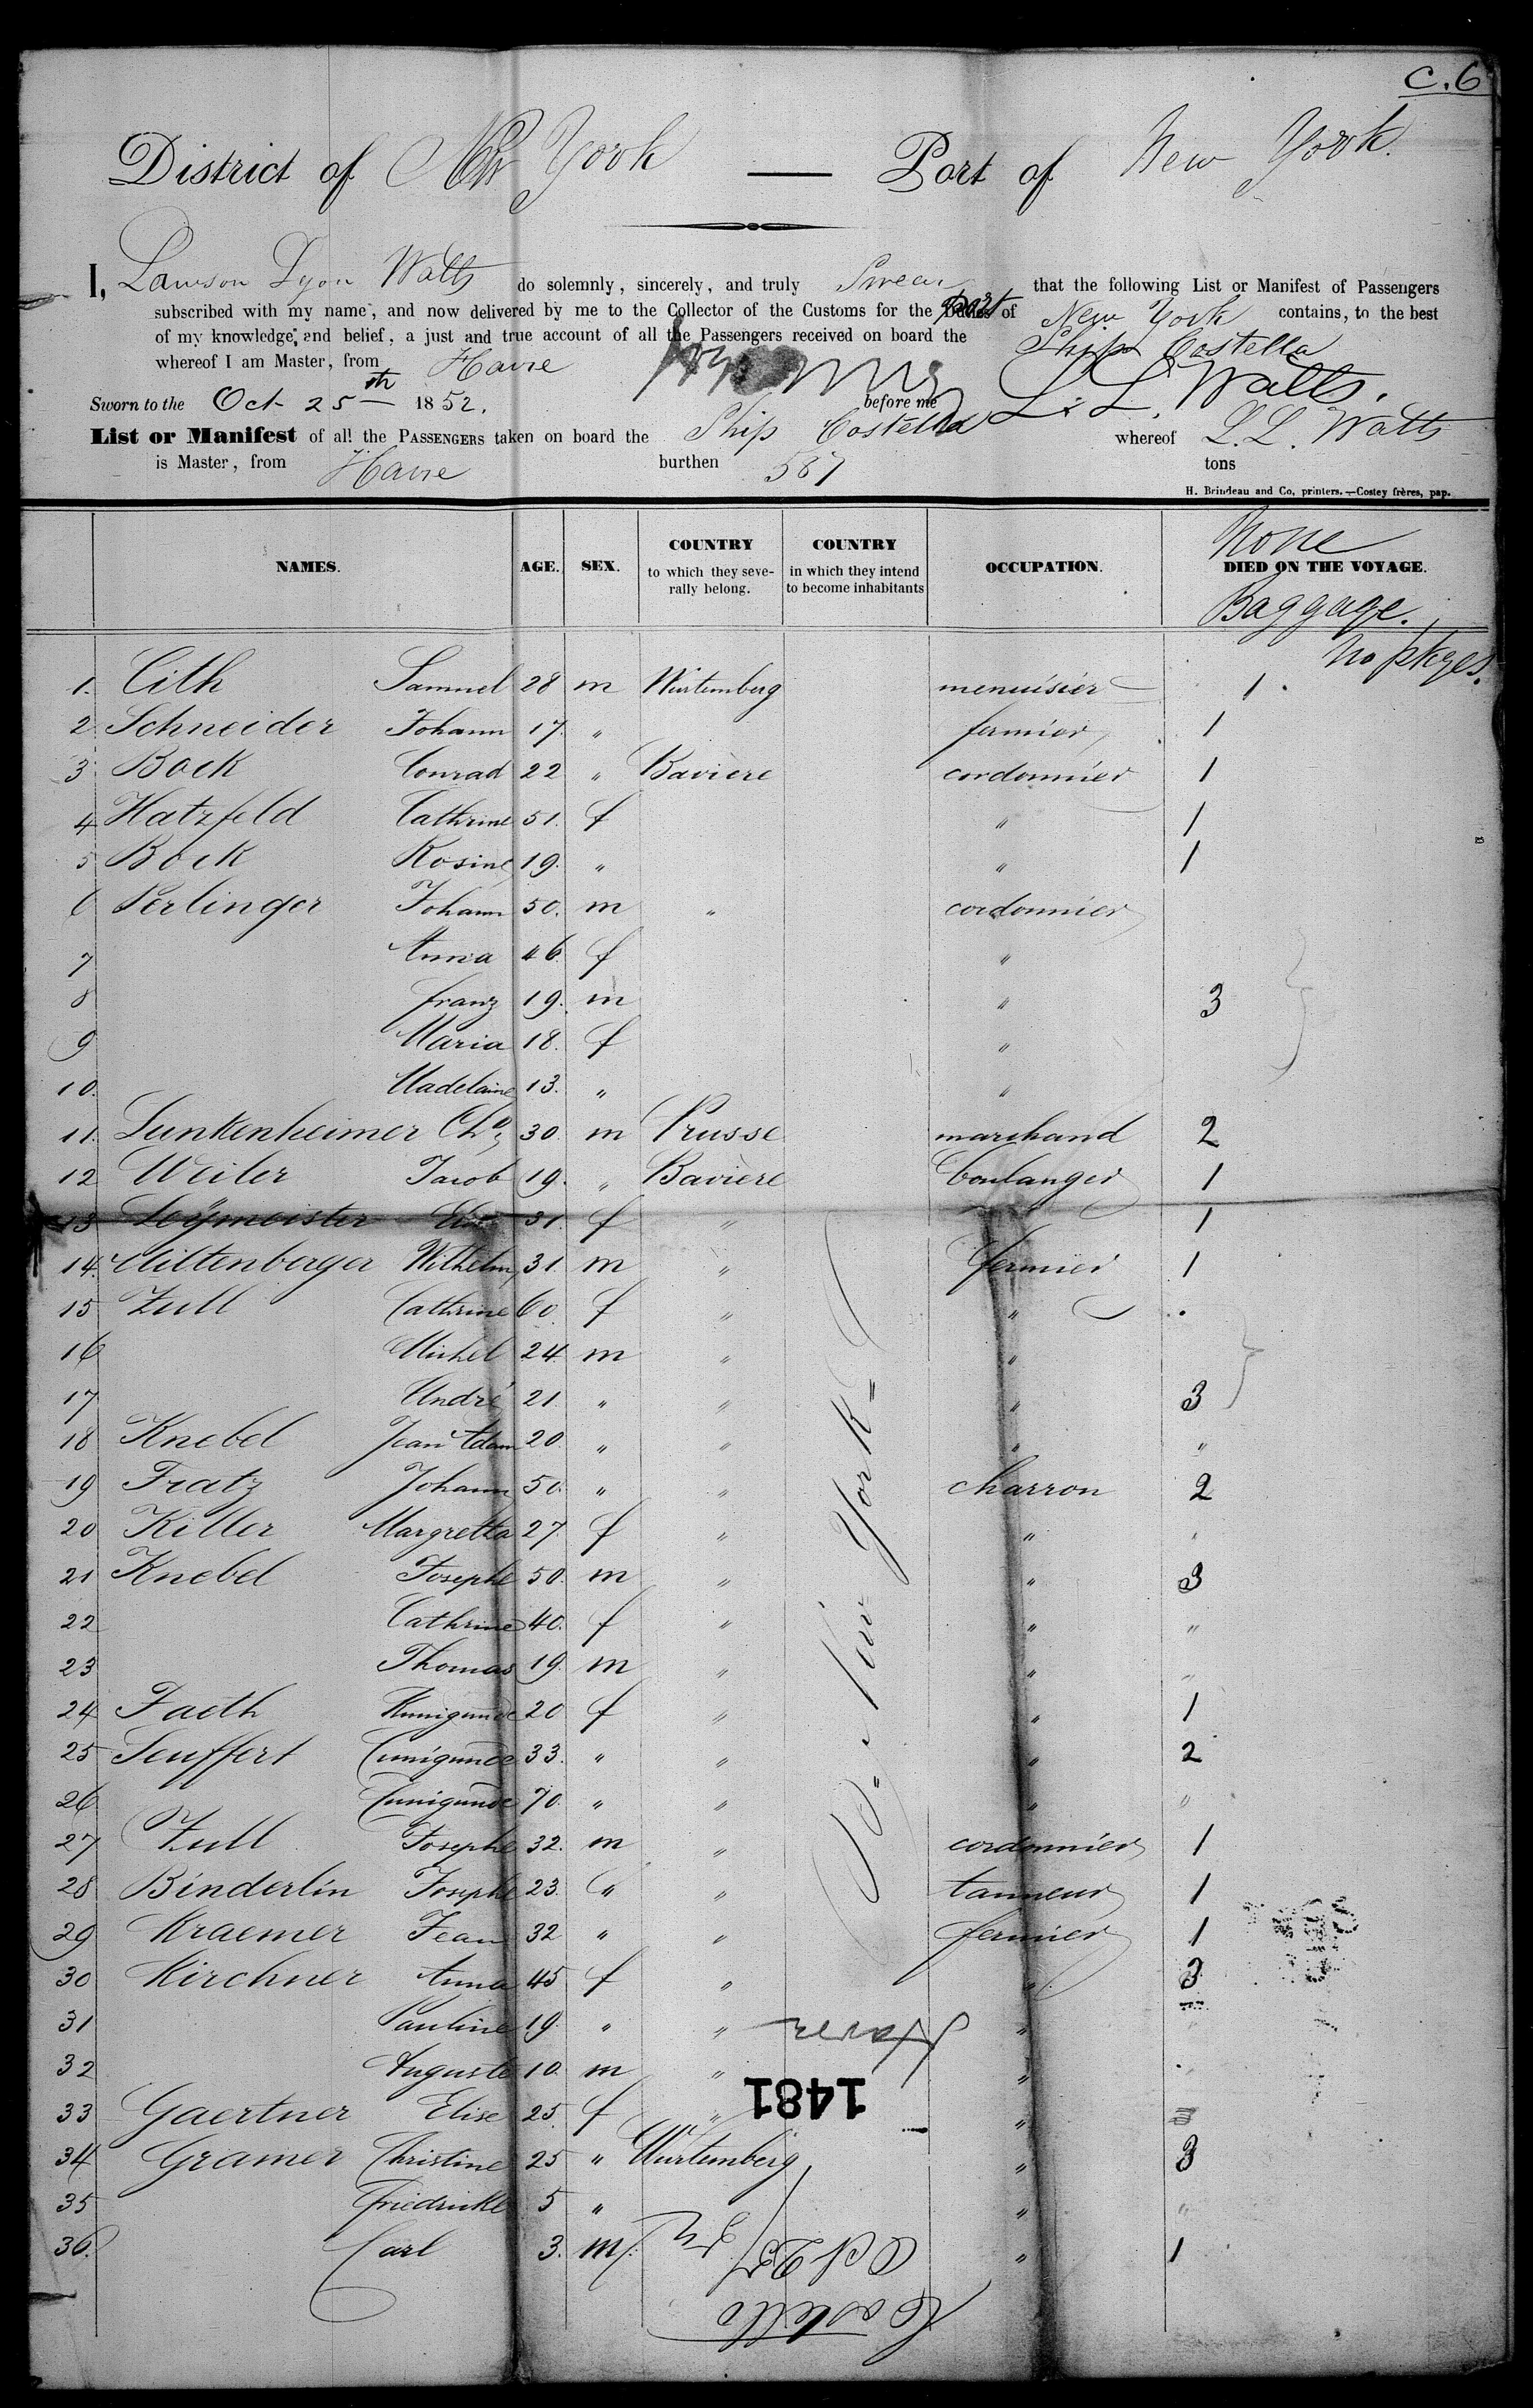 C.6
District of New York — Port of New York.
I, Lawson Lyon Watts do solemnly, sincerely, and truly Swear that the following List or Manifest of Passengers
subscribed with my name, and now delivered by me to the Collector of the Customs for the Port of New York contains, to the best
of my knowledge, and belief, a just and true account of all the Passengers received on board the Ship Costella
whereof I am Master, from Havre
L. L. Watts.
Sworn to the Oct 25th 1852. before me
List or Manifest of all the PASSENGERS taken on board the Ship Costella whereof L. L. Watts
is Master, from Havre burthen 587 tons
H. Brindeau and Co, printers.—Costey frères, pap.
NAMES. AGE. SEX. COUNTRY to which they severally belong. COUNTRY in which they intend to become inhabitants OCCUPATION. None DIED ON THE VOYAGE. Baggage.
No pkges.
1. Cith Samuel 28 m Würtemberg menuisier 1
2 Schneider Johann 17. " fermier 1
3 Bock Conrad 22 " Baviere cordonnier 1
4 Hatzfeld Cathrine 51. f " 1
5 Bock Rosine 19. " " 1
6 Serlinger Johann 50. m " cordonnier
7 Anna 46. f "
8 franz 19. m " 3
9 Maria 18. f "
10. Madelaine 13. " "
11. Sunkenheimer Chs 30. m Prusse marchand 2
12 Weiler Jacob 19. " Baviere boulanger 1
13 Loÿmeister 31. f " 1
14. Miltenberger Wilhelm 31. m " fermier 1
15 Zull Cathrine 60. f " "
16 Michel 24. m " "
17 André 21. " " " 3
18 Knebel Jean Adam 20. " " " "
19 Fratz Johann 50. " " charron 2
20 Killer Margretta 27. f " " "
21 Knebel Josephe 50. m " " 3
22 Cathrine 40. f " " "
23 Thomas 19. m " " "
24 Faeth Kunigunde 20 f " " 1
25 Seuffert Cunigunde 33. " " " 2
26 Cunigunde 70. " " " "
27 Zull Josephe 32. m " cordonnier 1
28 Binderlin Josephe 23. " " tanneur 1
29 Kraemer Jean 32 " " fermier 1
30 Kirchner Anna 45 f " " 3
31 Pauline 19. " " " "
32 Auguste 10. m " "
33 Gaertner Elise 25 f " "
34 Gramer Christine 25 " Würtemberg " 3
35 Friedricke 5 " " "
36. Carl 3. m. " 1
New York
Havre
1481
Oct 25/52
Costella